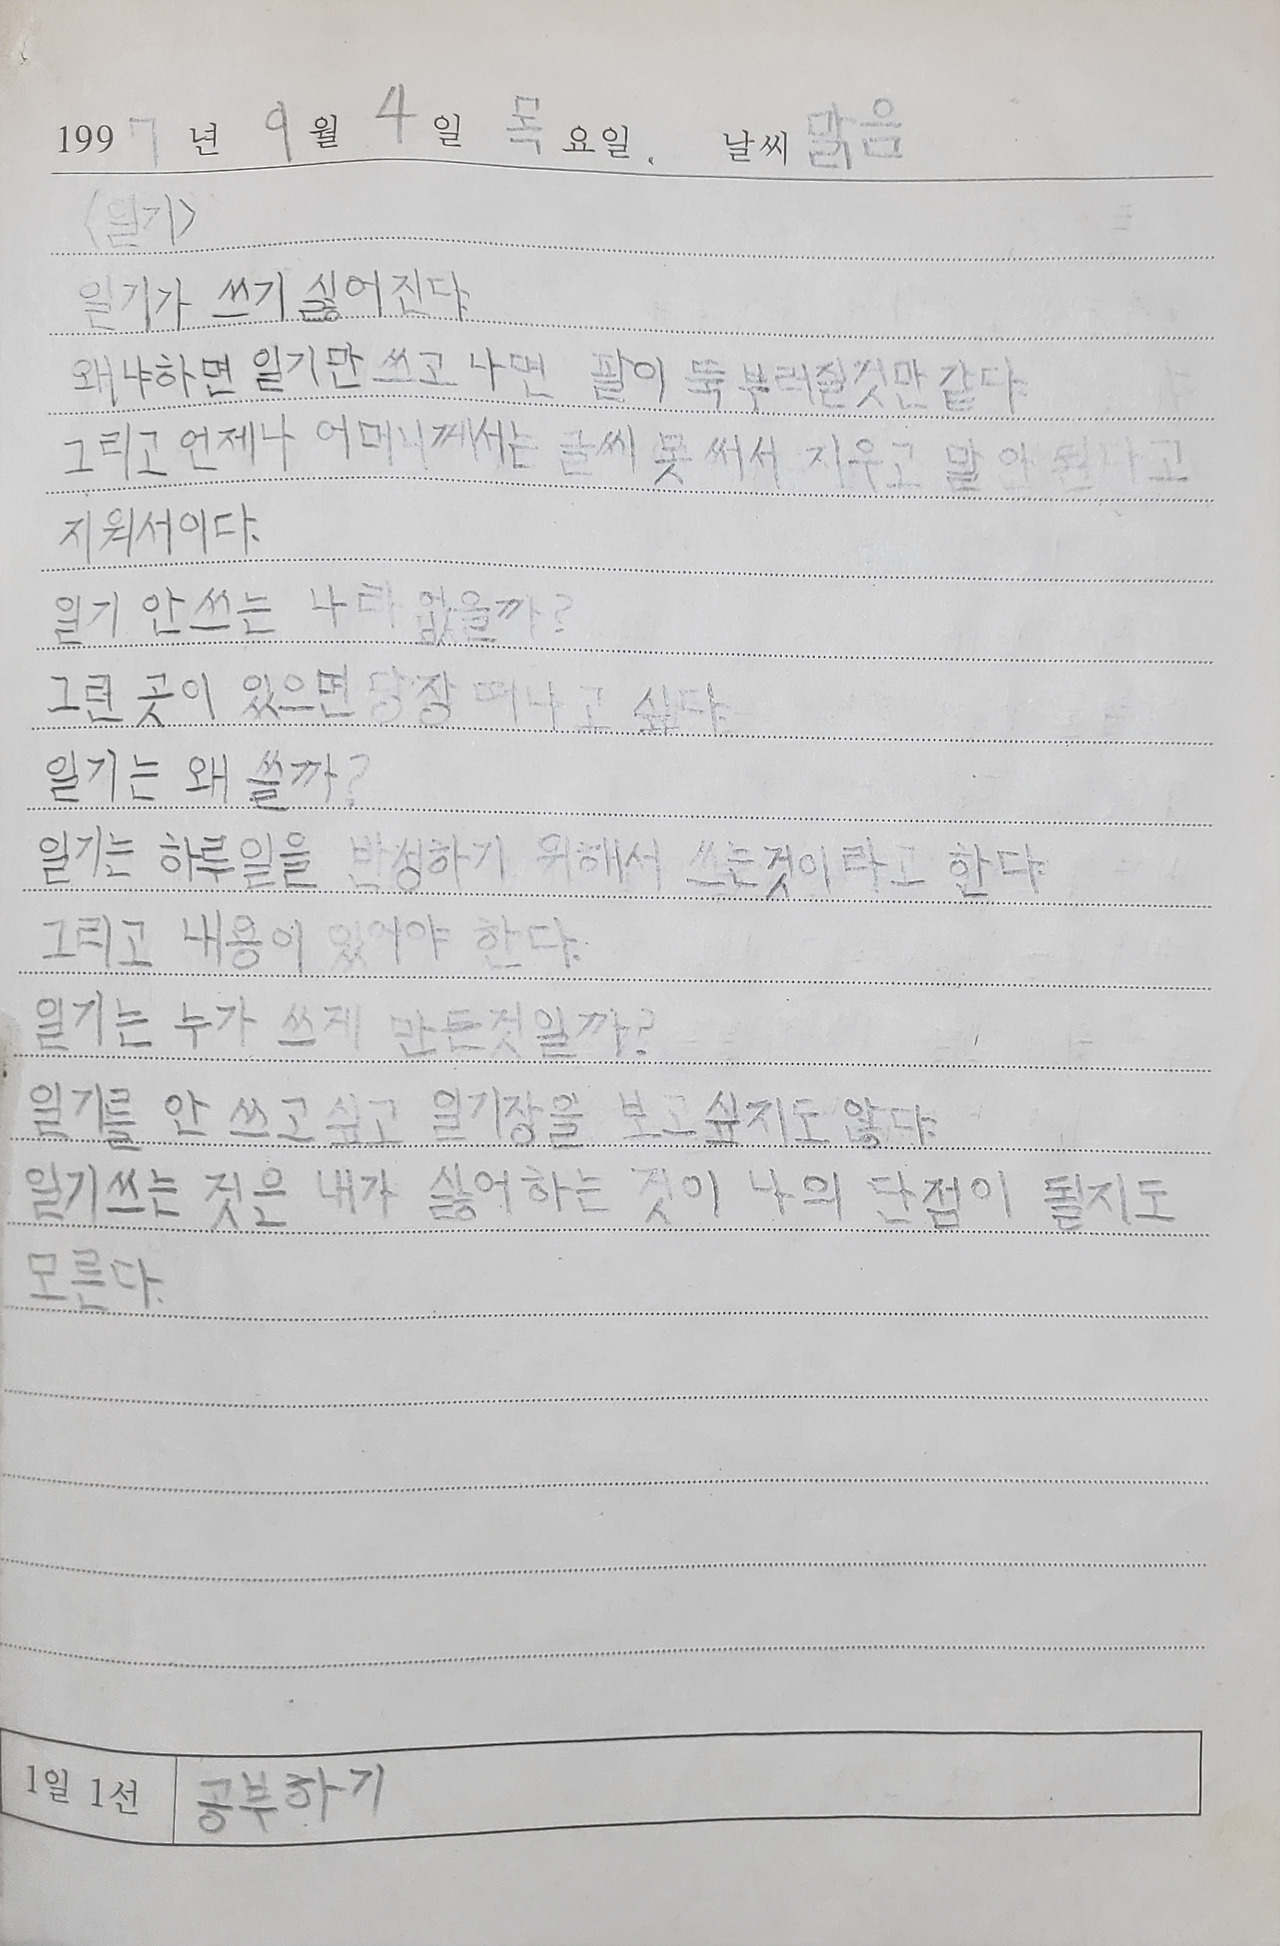 1997년 9월 4일 목요일. 날씨 맑음
<일기>
일기가 쓰기 싫어진다.
왜냐하면 일기만 쓰고 나면 팔이 뚝 부러질것만 같다.
그리고 언제나 어머니께서는 글씨 못 써서 지우고 말 안 된다고
지워서이다.
일기 안 쓰는 나라 없을까?
그런 곳이 있으면 당장 떠나고 싶다.
일기는 왜 쓸까?
일기는 하루일을 반성하기 위해서 쓰는것이라고 한다.
그리고 내용이 있어야 한다.
일기는 누가 쓰게 만든것일까?
일기를 안 쓰고 싶고 일기장을 보고 싶지도 않다.
일기쓰는 것은 내가 싫어하는 것이 나의 단점이 될지도
모른다.
1일 1선 공부하기